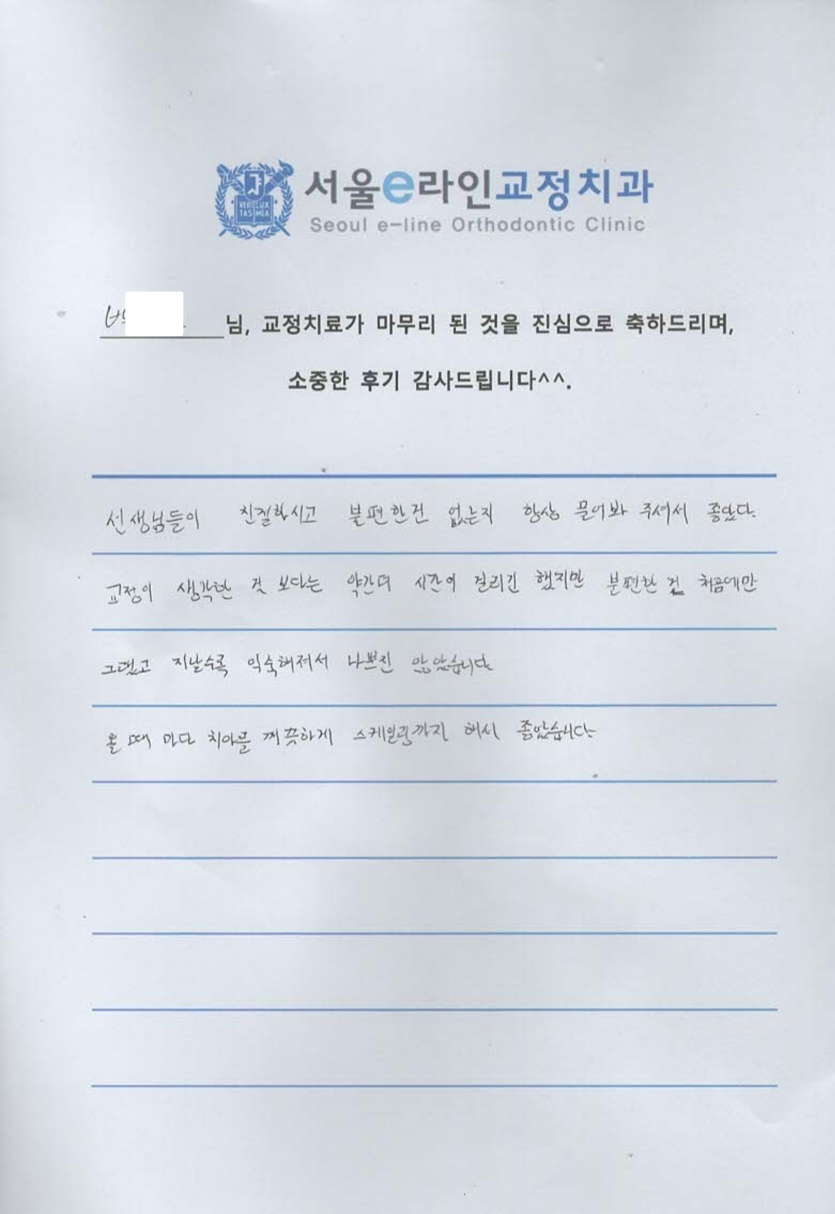 서울e라인교정치과
Seoul e-line Orthodontic Clinic
VERI LUX
TAS MEA
님, 교정치료가 마무리 된 것을 진심으로 축하드리며,
소중한 후기 감사드립니다^^.
선생님들이 친절하시고 불편한건 없는지 항상 물어봐 주셔서 좋았다.
교정이 생각한 것 보다는 약간더 시간이 걸리긴 했지만 불편한 건 처음에만
그랬고 지날수록 익숙해져서 나쁘진 않았습니다
올 때 마다 치아를 깨끗하게 스케일링까지 해서 좋았습니다